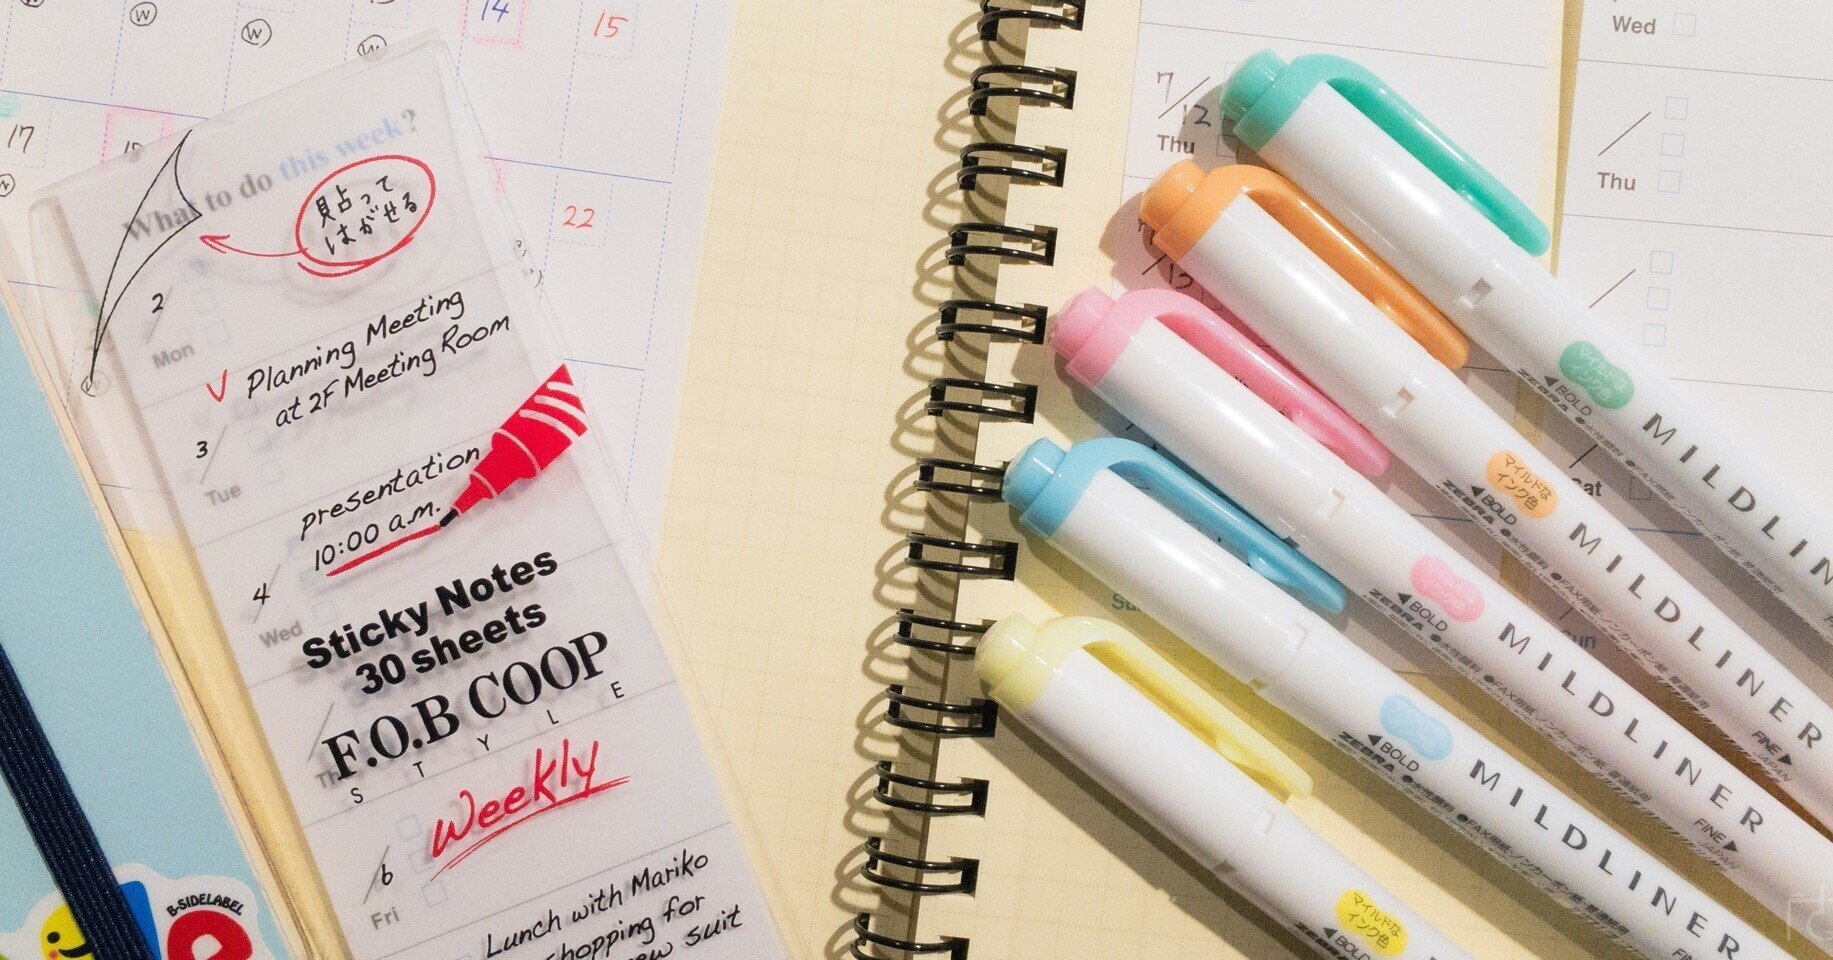 14
15
17
22
What to do this week?
貼って
はがせる
2
Mon
Planning Meeting
at 2F Meeting Room
3
Tue
presentation
10:00 a.m.
4
Wed
Sticky Notes
30 sheets
F.O.B COOP
STYLE
Th
Weekly
6
Fri
Lunch with Mariko
shopping for
new suit
B-SIDELABEL
7/12
Thu
Wed
Thu
Sun
BOLD
ZEBRA
MILDLIN
マイルドな
インク色
BOLD
ZEBRA
MILDLINER
BOLD
ZEBRA
MILDLINER
FINE
JAPAN
BOLD
ZEBRA
MILDLINER
FINE
JAPAN
マイルドな
インク色
BOLD
ZEBRA